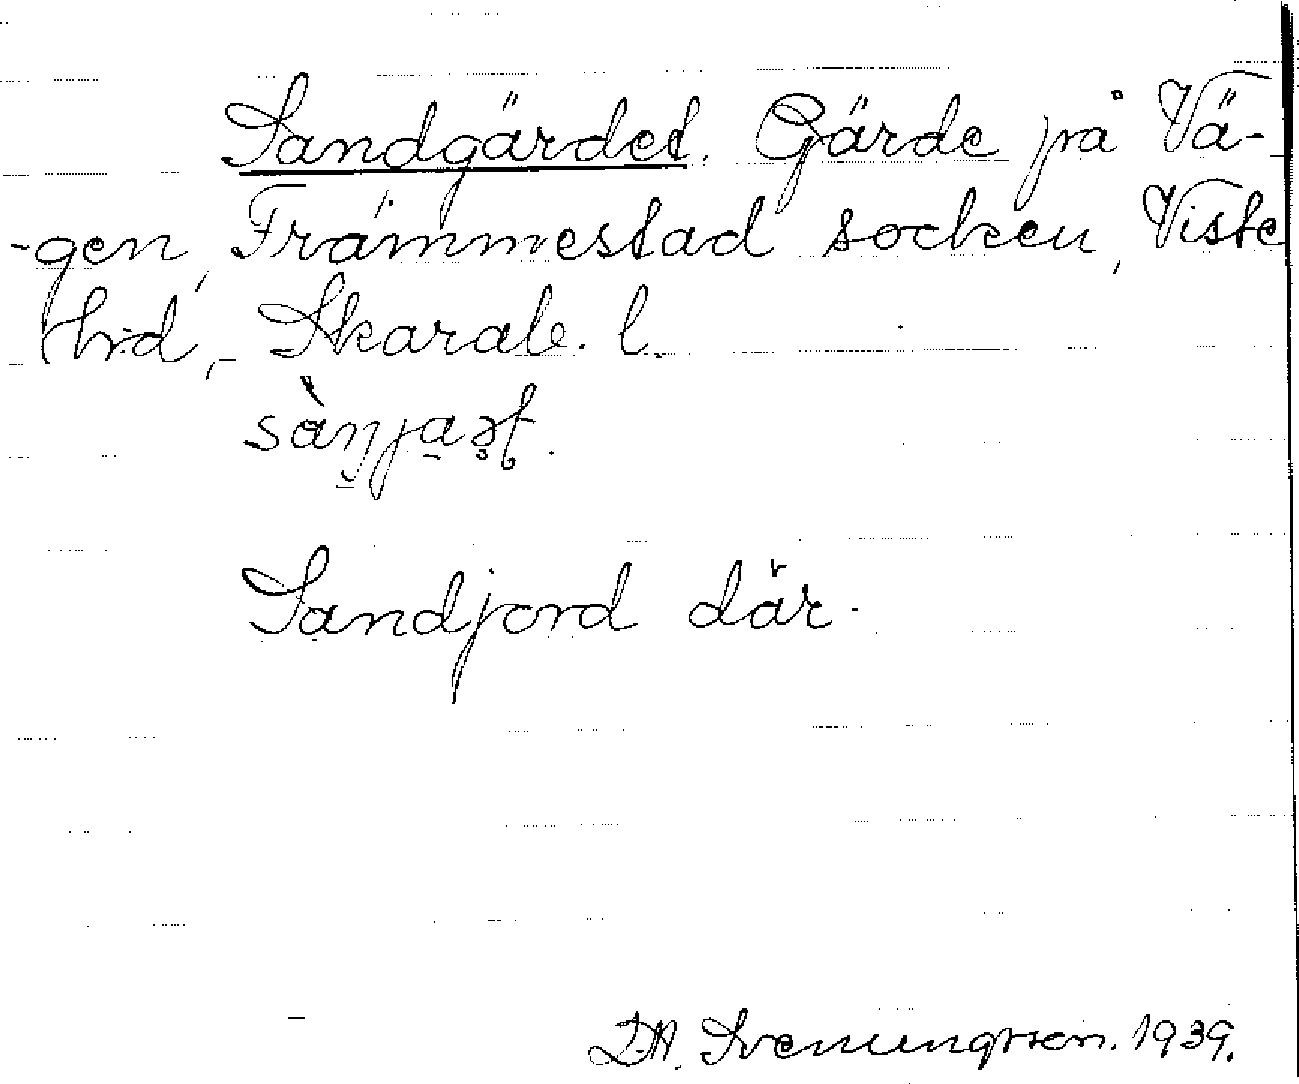 Sandgärdet. Gärde på Vä-
-gen, Främmestad socken, Viste
hd, Skarab. l.
Sandjord där.
D.A. Sveningsson. 1939.